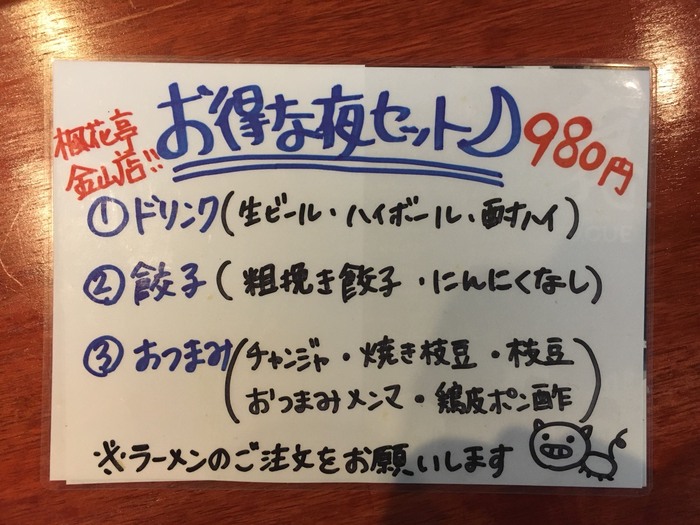 楓花亭
金山店!!
お得な夜セット♪ 980円
① ドリンク(生ビール・ハイボール・酎ハイ)
② 餃子(粗挽き餃子・にんにくなし)
③ おつまみ(チャンジャ・焼き枝豆・枝豆
おつまみメンマ・鶏皮ポン酢)
※ラーメンのご注文をお願いします